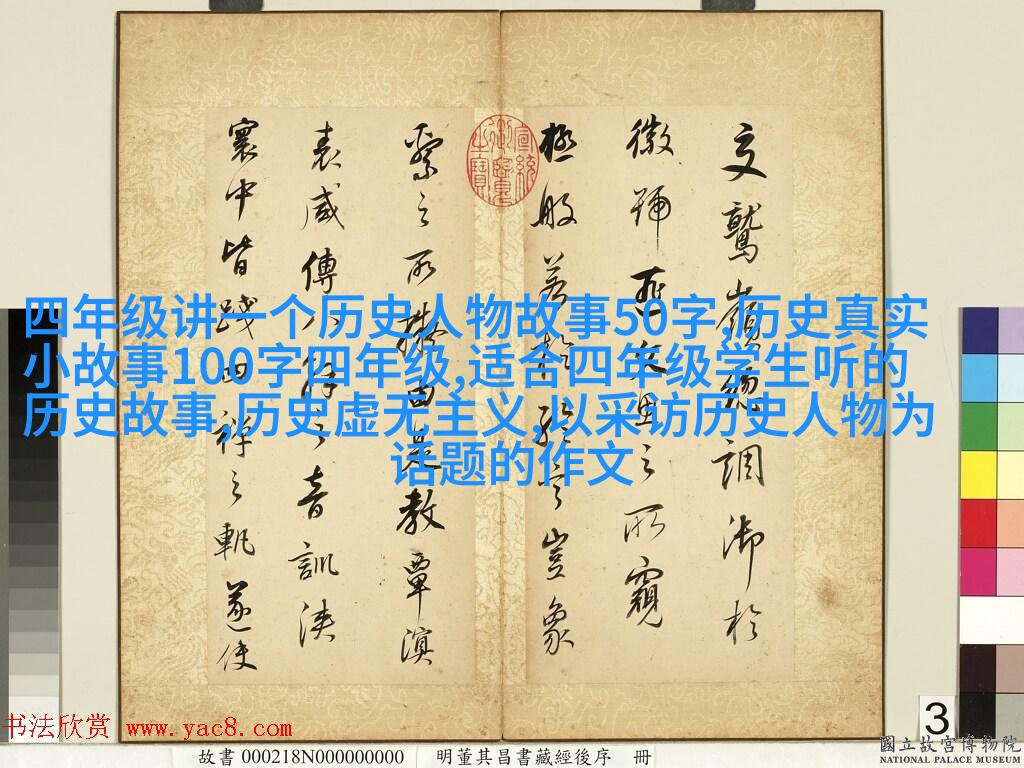 四年级讲一个历史人物故事50字,历史真实
小故事100字四年级,适合四年级学生听的
历史故事,历史虚无主义,以采访历史人物为
话题的作文
文鷲嶺總調御於
徽號匪文思之所窺
極般若於綸言豈象
繫之所擬由是教覃溟
表咸傳八解之音訓浹
寰中皆踐四禪之軌遂使
宣統御覽之寶
书法欣赏 www.yac8.com
故書 000218N000000000
明董其昌書藏經後序 冊
3
國立故宮博物院
NATIONAL PALACE MUSEUM